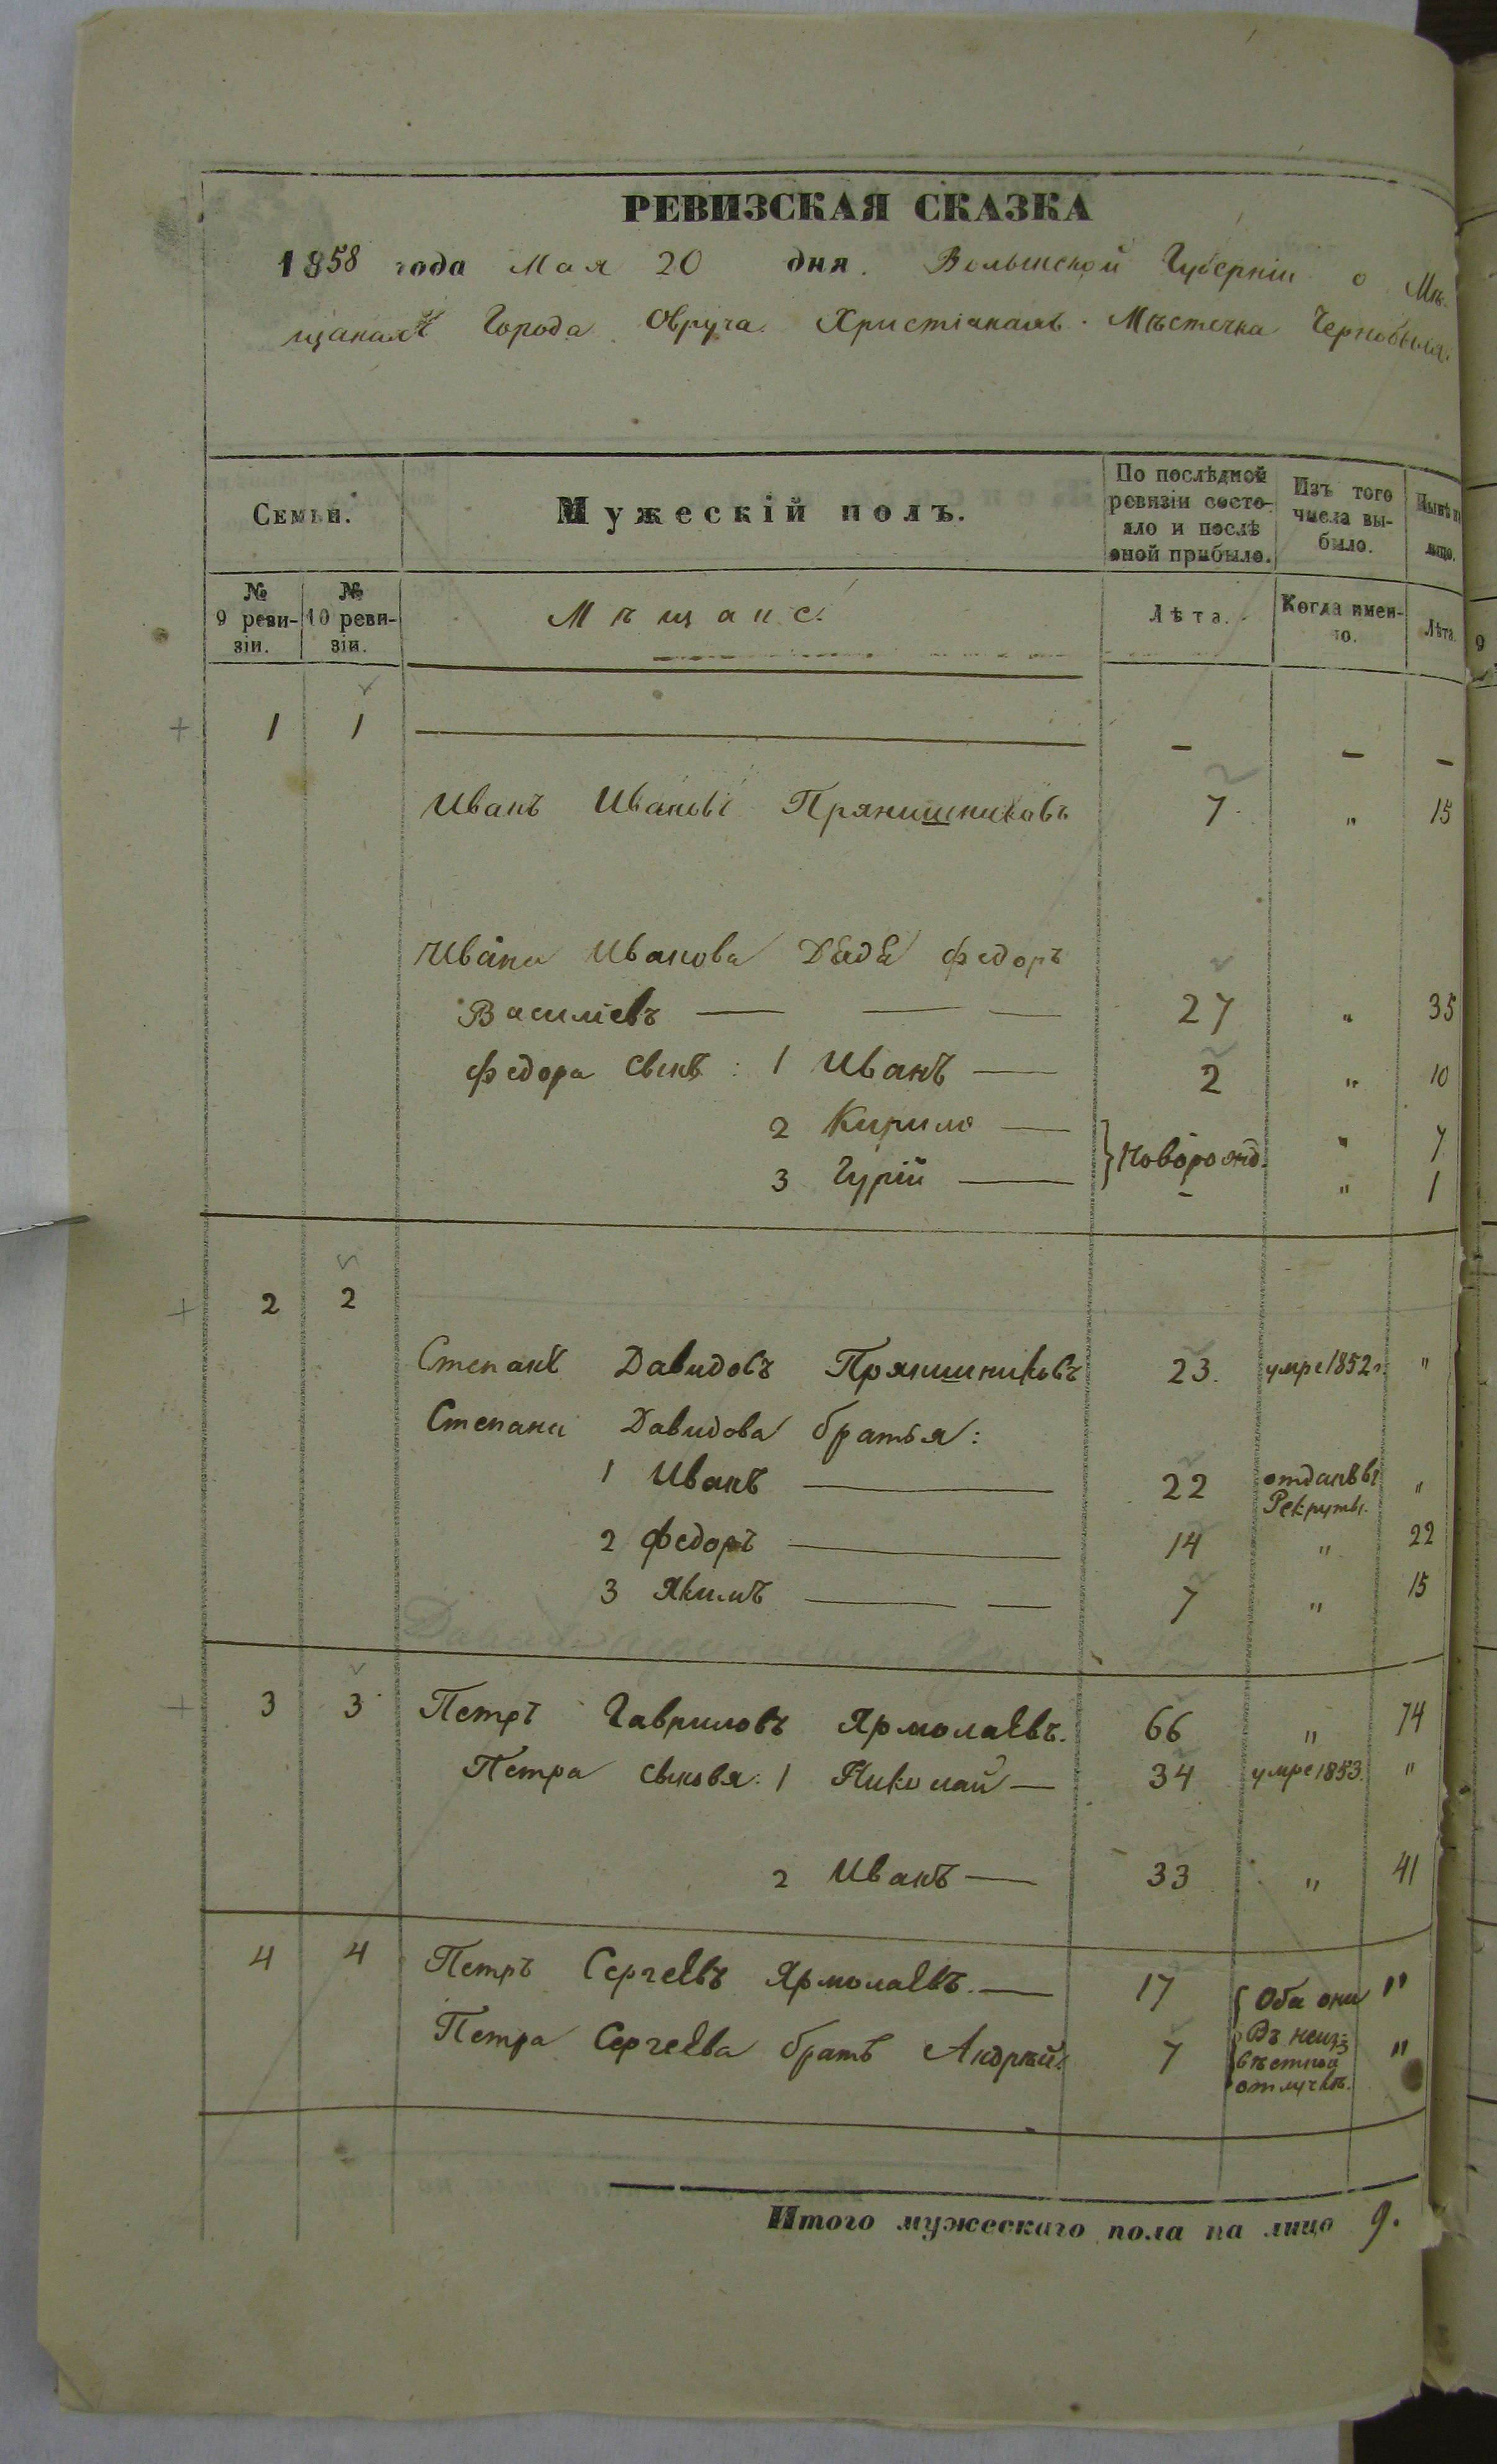 РЕВИЗСКАЯ СКАЗКА
1858 года Мая 20 дня. Волынской Губерніи о Мѣ-
щанахъ Города Овруча Христіанахъ Мѣстечка Чернобыля.
Семьи.
Мужескій полъ.
По послѣдней ревизіи состо-
яло и послѣ
оной прибыло.
Изъ того
числа вы-
было.
Нынѣ на
лицо.
№ 9 реви-
зіи.
№ 10 реви-
зіи.
Мѣщане.
Лѣта.
Когда имен-
но.
Лѣта.
1 1 — — —
Иванъ Ивановъ Прянишниковъ 7 " 15
Ивана Иванова Дядя Федоръ
Василіевъ — — — 27 " 35
Федора сынъ: 1 Иванъ — 2 " 10
2 Кирило — " 7
} Новорожд.
3 Гурій — " 1
2 2
Степанъ Давидовъ Прянишниковъ 23. умре 1852 г. "
Степана Давидова братья:
1 Иванъ — 22 отданъ въ "
Рекруты.
2 Федоръ — 14 " 22
3 Якимъ — — 7 " 15
3 3 Петръ Гавриловъ Ярмолаевъ. 66 " 74
Петра сыновя: 1 Николай — 34 умре 1853. "
2 Иванъ — 33 " 41
4 4 Петръ Сергеевъ Ярмолаевъ. — 17 { Оба они "
Петра Сергеева братъ Андрей. 7 Въ неиз- "
вѣстной
отлучкѣ.
Итого мужескаго пола на лицо 9.